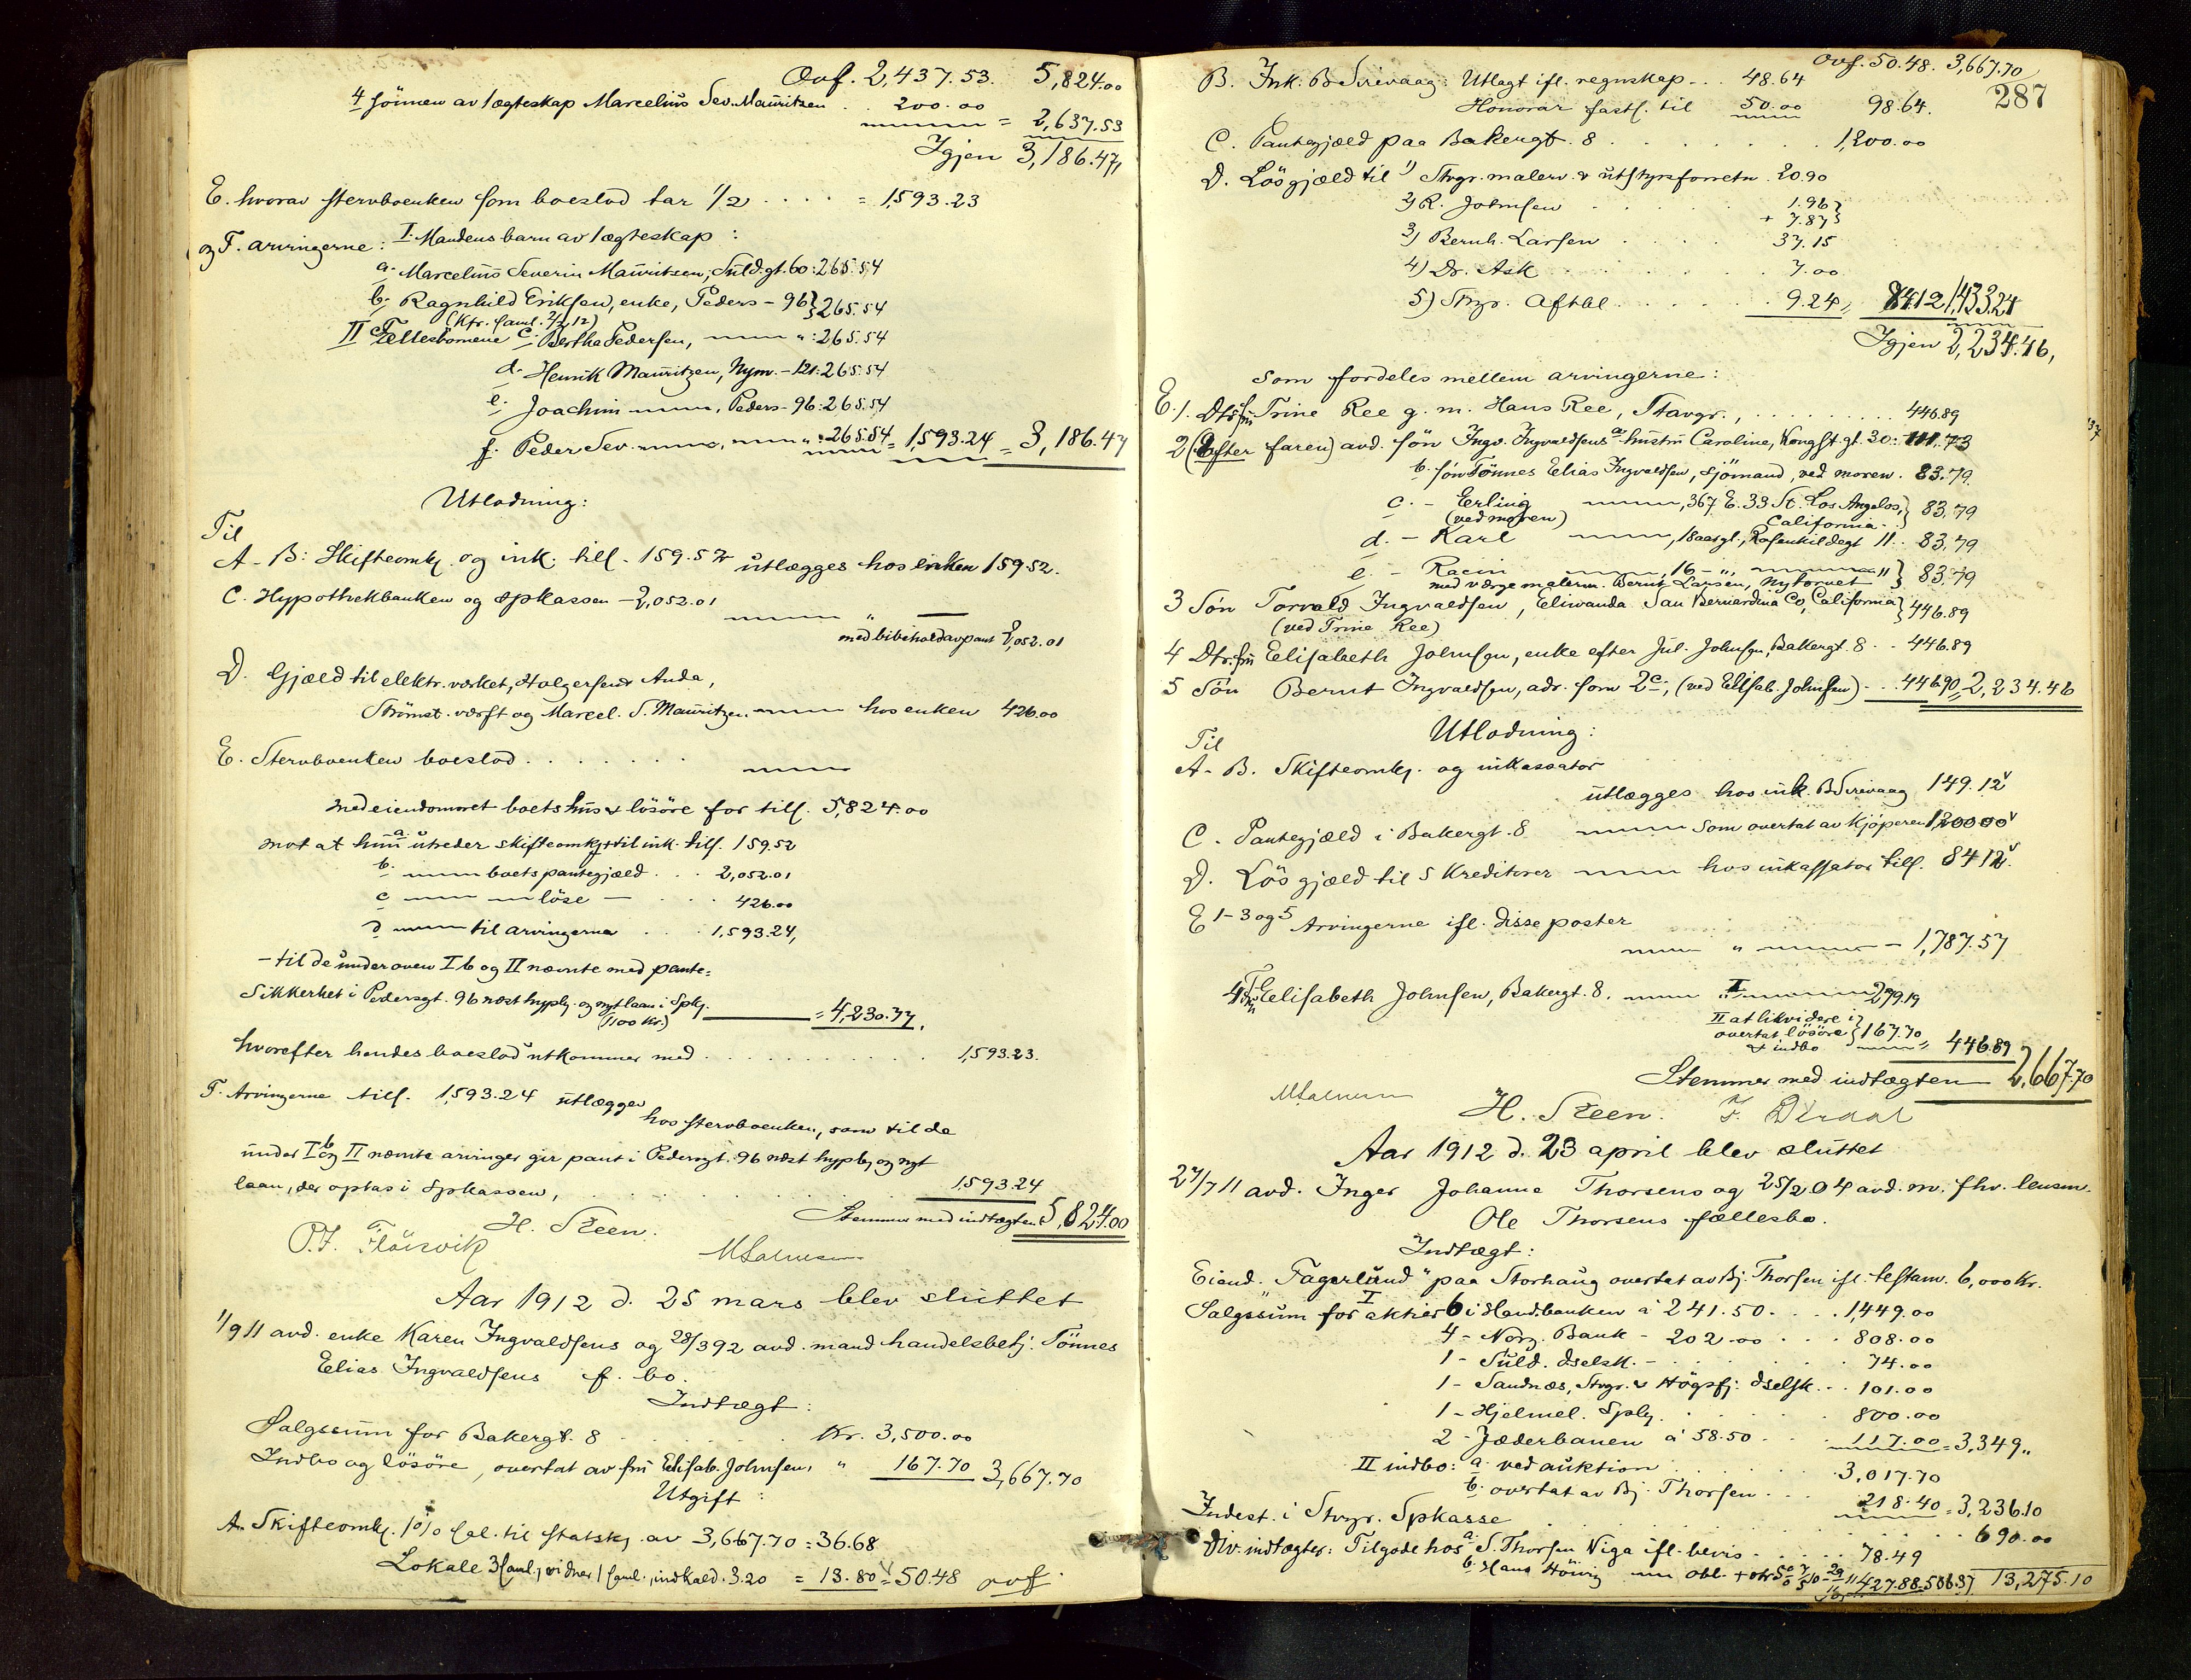 Ovf. 2,437.53. 5,824.00
4 sönnen av 1 ægteskap Marcelius Sev. Mauritzen . . 200.00
= 2,637.53
Igjen 3,186.47,
E. hvorav stervboenken som boeslod tar 1/2 . . . . = 1,593.23
og F. arvingerne: I. Mandens barn av 1 ægteskap:
a. Marcelius Severin Mauritsen, Suldgt. 60: 265.54
b. Ragnhild Eriksen, enke, Peders - 96 } 265.54
(Kfr. saml. 2/3 12)
II Fellesbornene c. Bertha Pedersen, " : 265.54
d. Henrik Mauritzen, Nym. - 121: 265.54
e. Joachim, Peders - 96: 265.54
f. Peder Sev. " : 265.54 = 1,593.24 = 3,186.47
Utlodning:
Til
A - B: Skifteomk. og ink. tils. 159.52 utlægges hos enken 159.52.
C. Hypothekbanken og Spkassen - 2,052.01 "
med bibehold av pant 2,052.01
D. Gjæld til elektr. værket, Holgersen & Anda,
Strömst. værft og Marcel. S. Mauritzen hos enken 426.00
E. Stervboenken boeslod . . . . . . .
med eiendomsret boets hus & lösöre for tils. 5,824.00
mot at hun a. utreder skifteomk. + til ink. tils. 159.52
b. boets pantegjæld . . . 2,052.01
c löse - . . . 426.00
d til arvingerna . . . 1,593.24,
- til de under oven I b og II nævnte med pante=
sikkerhet i Pedersgt. 96 næst hyptk. og nyt laan i Spk.
(1100 Kr.) = 4,230.77.
hvorefter hendes boeslod utkommer med . . . . . . . . . . . 1,593.23.
F. Arvingerne tils. 1,593.24 utlægges
hos stervboenken, som til de
under I b og II nævnte arvinger gir pant i Pedersgt. 96 næst hyptk. og nyt
laan, der optas i Spkassen, . . . . . . . . . 1,593.24
Stemmer med indtægten 5,824.00
H. Steen.
Aar 1912 d. 25 mars blev sluttet
1/9 11 avd. enke Karen Ingvaldsens og 28/3 92 avd. mand handelsbetj. Tönnes
Elias Ingvaldsens f. bo.
Indtægt:
Salgssum for Bakergt. 8 . . . . . Kr. 3,500.00
Indbo og lösöre, overtat av fru Elisab. Johnsen, " 167.70 3,667.70
Utgift:
A. Skifteomk. 1% sal. til statsk. av 3,667.70 = 36.68
Lokale 3 saml., vidner 1 saml., indkald. 3.20 = 13.80 = 50.48 ovf
Ovf. 50.48. 3,667.70
287
B. Ink. B Sirevaag: Utlagt ifl. regnskap - . . 48.64
Honorar fasts. til 50.00 98.64.
C. Pantegjæld paa Bakergt. 8 . . . . . . . . . 1,200.00
D. Lösgjæld til 1) Stvgr. malerv. & utstyrsforretn. 20.90
2) R. Johnsen . . . . . 1.96 }
+ 7.87 }
3) Bernh. Larsen . . . . 37.15
4) Dr. Ask . . . . . . 7.00
5) Stvgr. Aftbl. . . . . . 9.24 = 84.12 1,433.24
Igjen 2,234.46,
som fordeles mellem arvingerne:
E. 1. Dtr. fru Trine Ree g. m. Hans Ree, Stavgr., . . . . . . . . . 446.89
2 (Efter faren) avd. sön Ingv. Ingvaldsens a. hustru Caroline, Kongsg. gt. 30: 111.73
b. sön Tönnes Elias Ingvaldsen, sjömand, ved moren. 83.79
c. - Erling, 367 E. 33 St. Los Angelos, } 83.79
(ved moren) California
d. - Karl, 18 aar gl., Rosenkildegt 11 . . 83.79
e. - Racin, 16 - ", 11 } 83.79
med værge malerm. Bernt Larsen, Nytorvet
3 Sön Torvald Ingvaldsen, Etiwanda San Bernardina Co, California } 446.89
(ved Trine Ree)
4 Dtr. fru Elisabeth Johnsen, enke efter Jul. Johnsen, Bakergt. 8 . . 446.89
5 Sön Bernt Ingvaldsen, adr. som 2c, (ved Elisab. Johnsen) - . . 446.90 = 2,234.46
Utlodning:
Til
A - B. Skifteomk. og inkassator
utlægges hos ink. B Sirevaag 149.12
C. Pantegjæld i Bakergt. 8 som overtat av kjöperen 1,200.00
D. Lösgjæld til 5 Kreditorer hos inkassator tils. 84.12
E 1-3 og 5 Arvingerne ifl. disse poster
" - 1,787.57
4 Fru Elisabeth Johnsen, Bakergt. 8. I " 279.19
II at likvidere i }
overtat lösöre } 167.70
& indbo = 446.89
Stemmer med indtægten 3,667.70
H. Steen.
Aar 1912 d. 23 april blev sluttet
27/7 11 avd. Inger Johanne Thorsens og 25/2 04 avd. m. fhv. lensm.
Ole Thorsens fællesbo.
Indtægt:
Eiend. "Fagerlund" paa Storhaug overtat av Bj. Thorsen ifl. testam. 6,000 Kr.
Salgssum for I aktier 6 i Hand. banken à 241.50 . . . . 1,449.00
4 - Norg. Bank - 202.00 . . . 808.00
1 - Suld. dselsk. - . . . . . . 74.00
1 - Sandnæs, Stvgr. & Högsfj. dselsk. . . 101.00
1 - Hjelmel. Spk. . . . . . . 800.00
2 - Jæderbanen à 58.50 . . . 117.00 = 3,349 "
II indbo: a. ved auktion . . . . . . . 3,017.70
b. overtat av Bj. Thorsen . . . 218.40 = 3,236.10
Indest. i Stvgr. Spkasse . . . . . . . . . . . 690.00
Div. indtægter: Tilgode hos a. S. Thorsen Viga ifl. bevis . . . . . 78.49
b. Hans obl. + 427.88 = 506.37 13,275.10